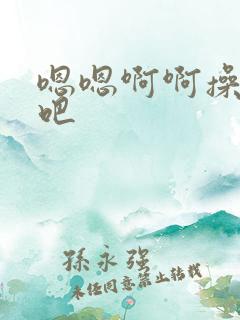 嗯嗯啊啊操
吧
孫永强
未经同意禁止转载